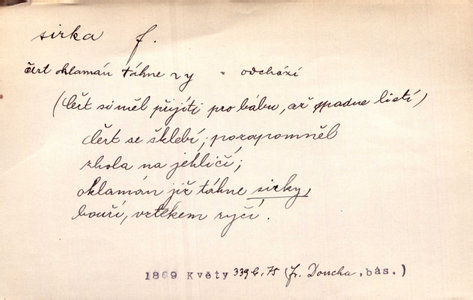 sirka f.
čert oklamán táhne ry = odchází
(Čert si měl přijíti pro bábu, až spadne listí,)
Čert se šklebí; pozapomněl
zhola na jehličí;
oklamán již táhne sirky,
bouří, vztekem ryčí.
1869 Květy 339 b, 75 (Fr. Doucha, bás.)